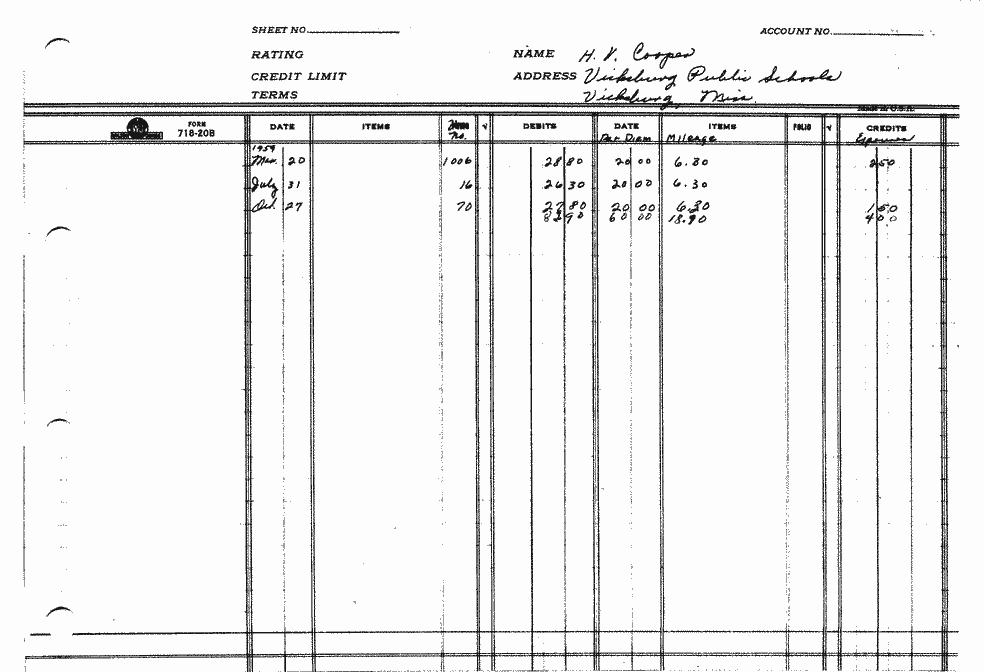 SHEET NO. ACCOUNT NO.
RATING NAME H. V. Cooper
CREDIT LIMIT ADDRESS Vicksburg Public Schools
TERMS Vicksburg, Miss.
MADE IN U.S.A.
FORM 718-20B DATE ITEMS No. √ DEBITS DATE ITEMS FOLIO √ CREDITS
Per Diem Mileage Expenses
1959
Mar. 20 1006 28 80 20 00 6.30 2 50
July 31 16 26 30 20 00 6.30
Oct. 27 70 27 80 20 00 6.30 1 50
82 90 60 00 18.90 4 00